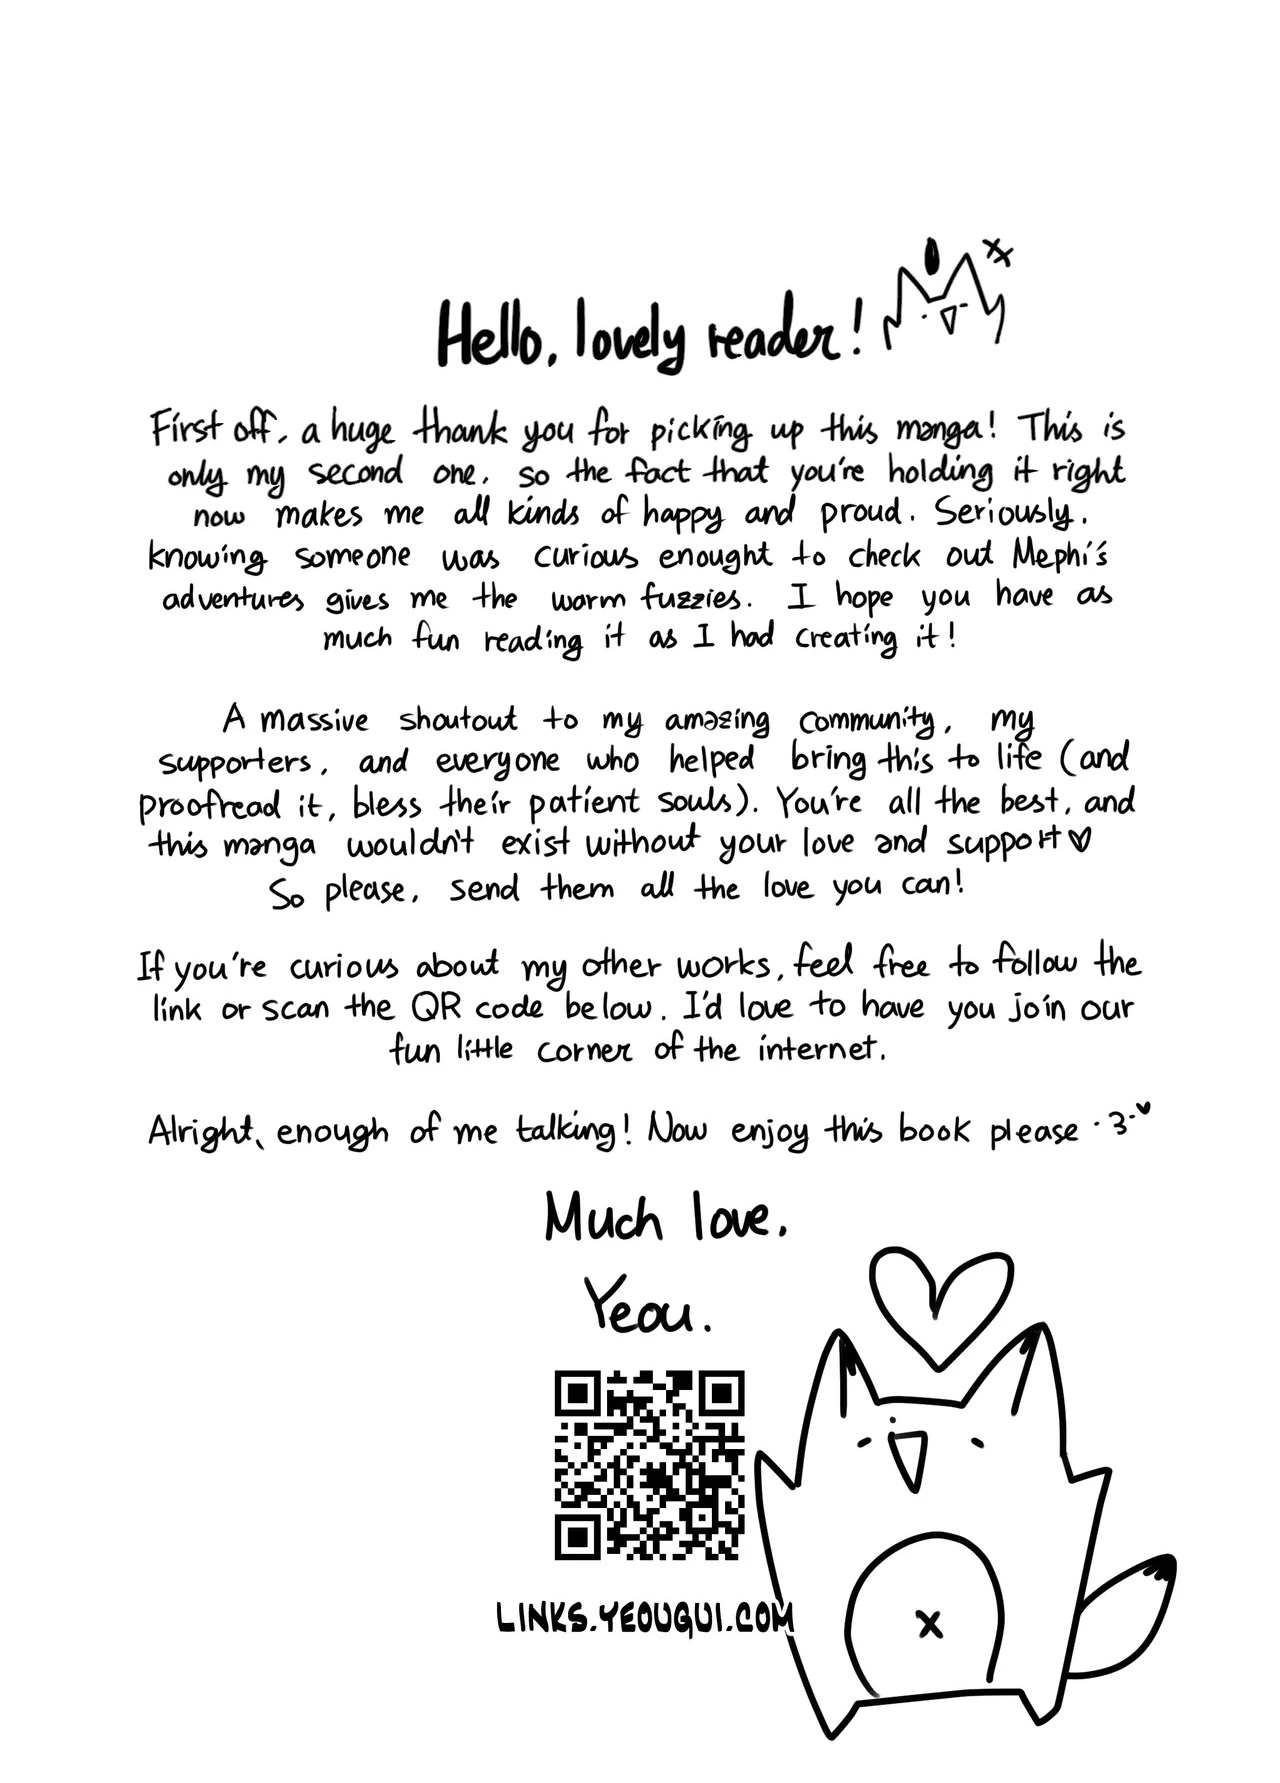 Hello, lovely reader!
First off, a huge thank you for picking up this manga! This is
only my second one, so the fact that you're holding it right
now makes me all kinds of happy and proud. Seriously,
knowing someone was curious enought to check out Mephi's
adventures gives me the warm fuzzies. I hope you have as
much fun reading it as I had creating it!
A massive shoutout to my amazing community, my
supporters, and everyone who helped bring this to life (and
proofread it, bless their patient souls). You're all the best, and
this manga wouldn't exist without your love and support♥
So please, send them all the love you can!
If you're curious about my other works, feel free to follow the
link or scan the QR code below. I'd love to have you join our
fun little corner of the internet.
Alright, enough of me talking! Now enjoy this book please ·3-♥
Much love,
Yeou.
LINKS.YEOUGUI.COM